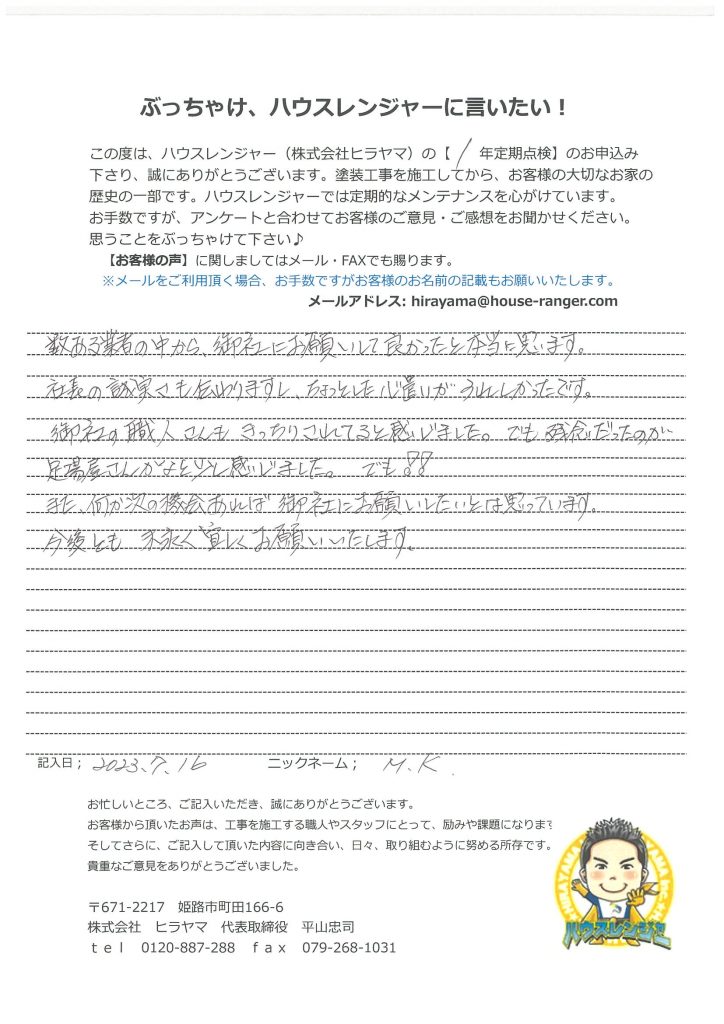 ぶっちゃけ、ハウスレンジャーに言いたい！
この度は、ハウスレンジャー（株式会社ヒラヤマ）の【 1 年定期点検】のお申込み
下さり、誠にありがとうございます。塗装工事を施工してから、お客様の大切なお家の
歴史の一部です。ハウスレンジャーでは定期的なメンテナンスを心がけています。
お手数ですが、アンケートと合わせてお客様のご意見・ご感想をお聞かせください。
思うことをぶっちゃけて下さい♪
【お客様の声】に関しましてはメール・FAXでも賜ります。
※メールをご利用頂く場合、お手数ですがお客様のお名前の記載もお願いいたします。
メールアドレス: hirayama@house-ranger.com
数ある業者の中から、御社にお願いして良かったと本当に思います。
社長の誠実さも伝わりますし、ちょっとした心遣いがうれしかったです。
御社の職人さんもきっちりされてると感じました。でも残念だったのが
足場屋さんが と感じました。でも!!
また、何か次の機会あれば御社にお願いしたいとは思っています。
今後とも末永く宜しくお願いいたします。
記入日； 2023.7.16 ニックネーム； M.K.
お忙しいところ、ご記入いただき、誠にありがとうございます。
お客様から頂いたお声は、工事を施工する職人やスタッフにとって、励みや課題になります
そしてさらに、ご記入して頂いた内容に向き合い、日々、取り組むように努める所存です。
貴重なご意見をありがとうございました。
〒671-2217 姫路市町田166-6
株式会社 ヒラヤマ 代表取締役 平山忠司
ｔｅｌ 0120-887-288 ｆａｘ 079-268-1031
HIRAYAMA
ハウスレンジャー